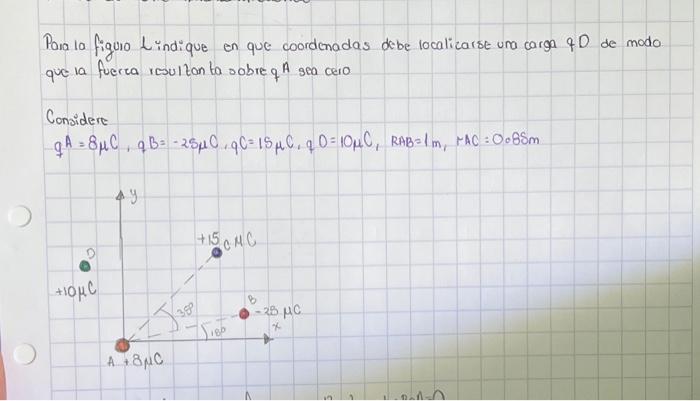 Para la figura 1 indique en que coordenadas debe localizarse una carga qD de modo
que la fuerza resultante sobre qA sea cero
Considere
qA = 8μC, qB = -25μC, qC = 15μC, qD = 10μC, RAB = 1m, rAC = 0.85m
y
+15 C MC
D
+10μC
38º
B
-25 μC
18º
x
A +8μC